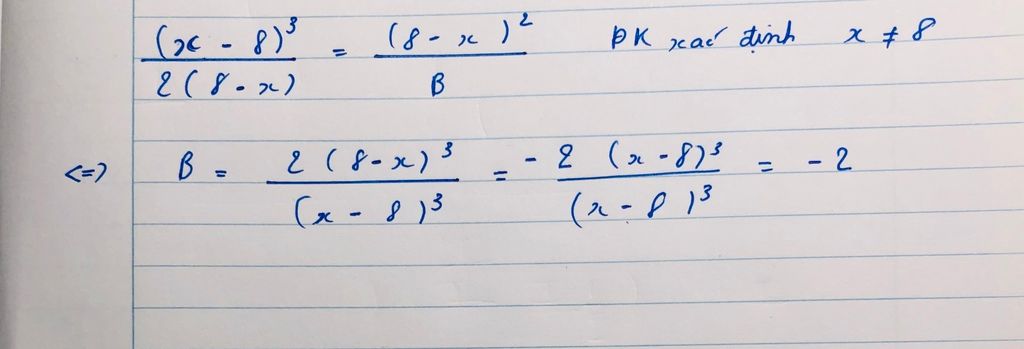 (x - 8)³ / 2(8 - x) = (8 - x)² / B ĐK xác định x ≠ 8
<=> B = 2(8 - x)³ / (x - 8)³ = - 2(x - 8)³ / (x - 8)³ = - 2